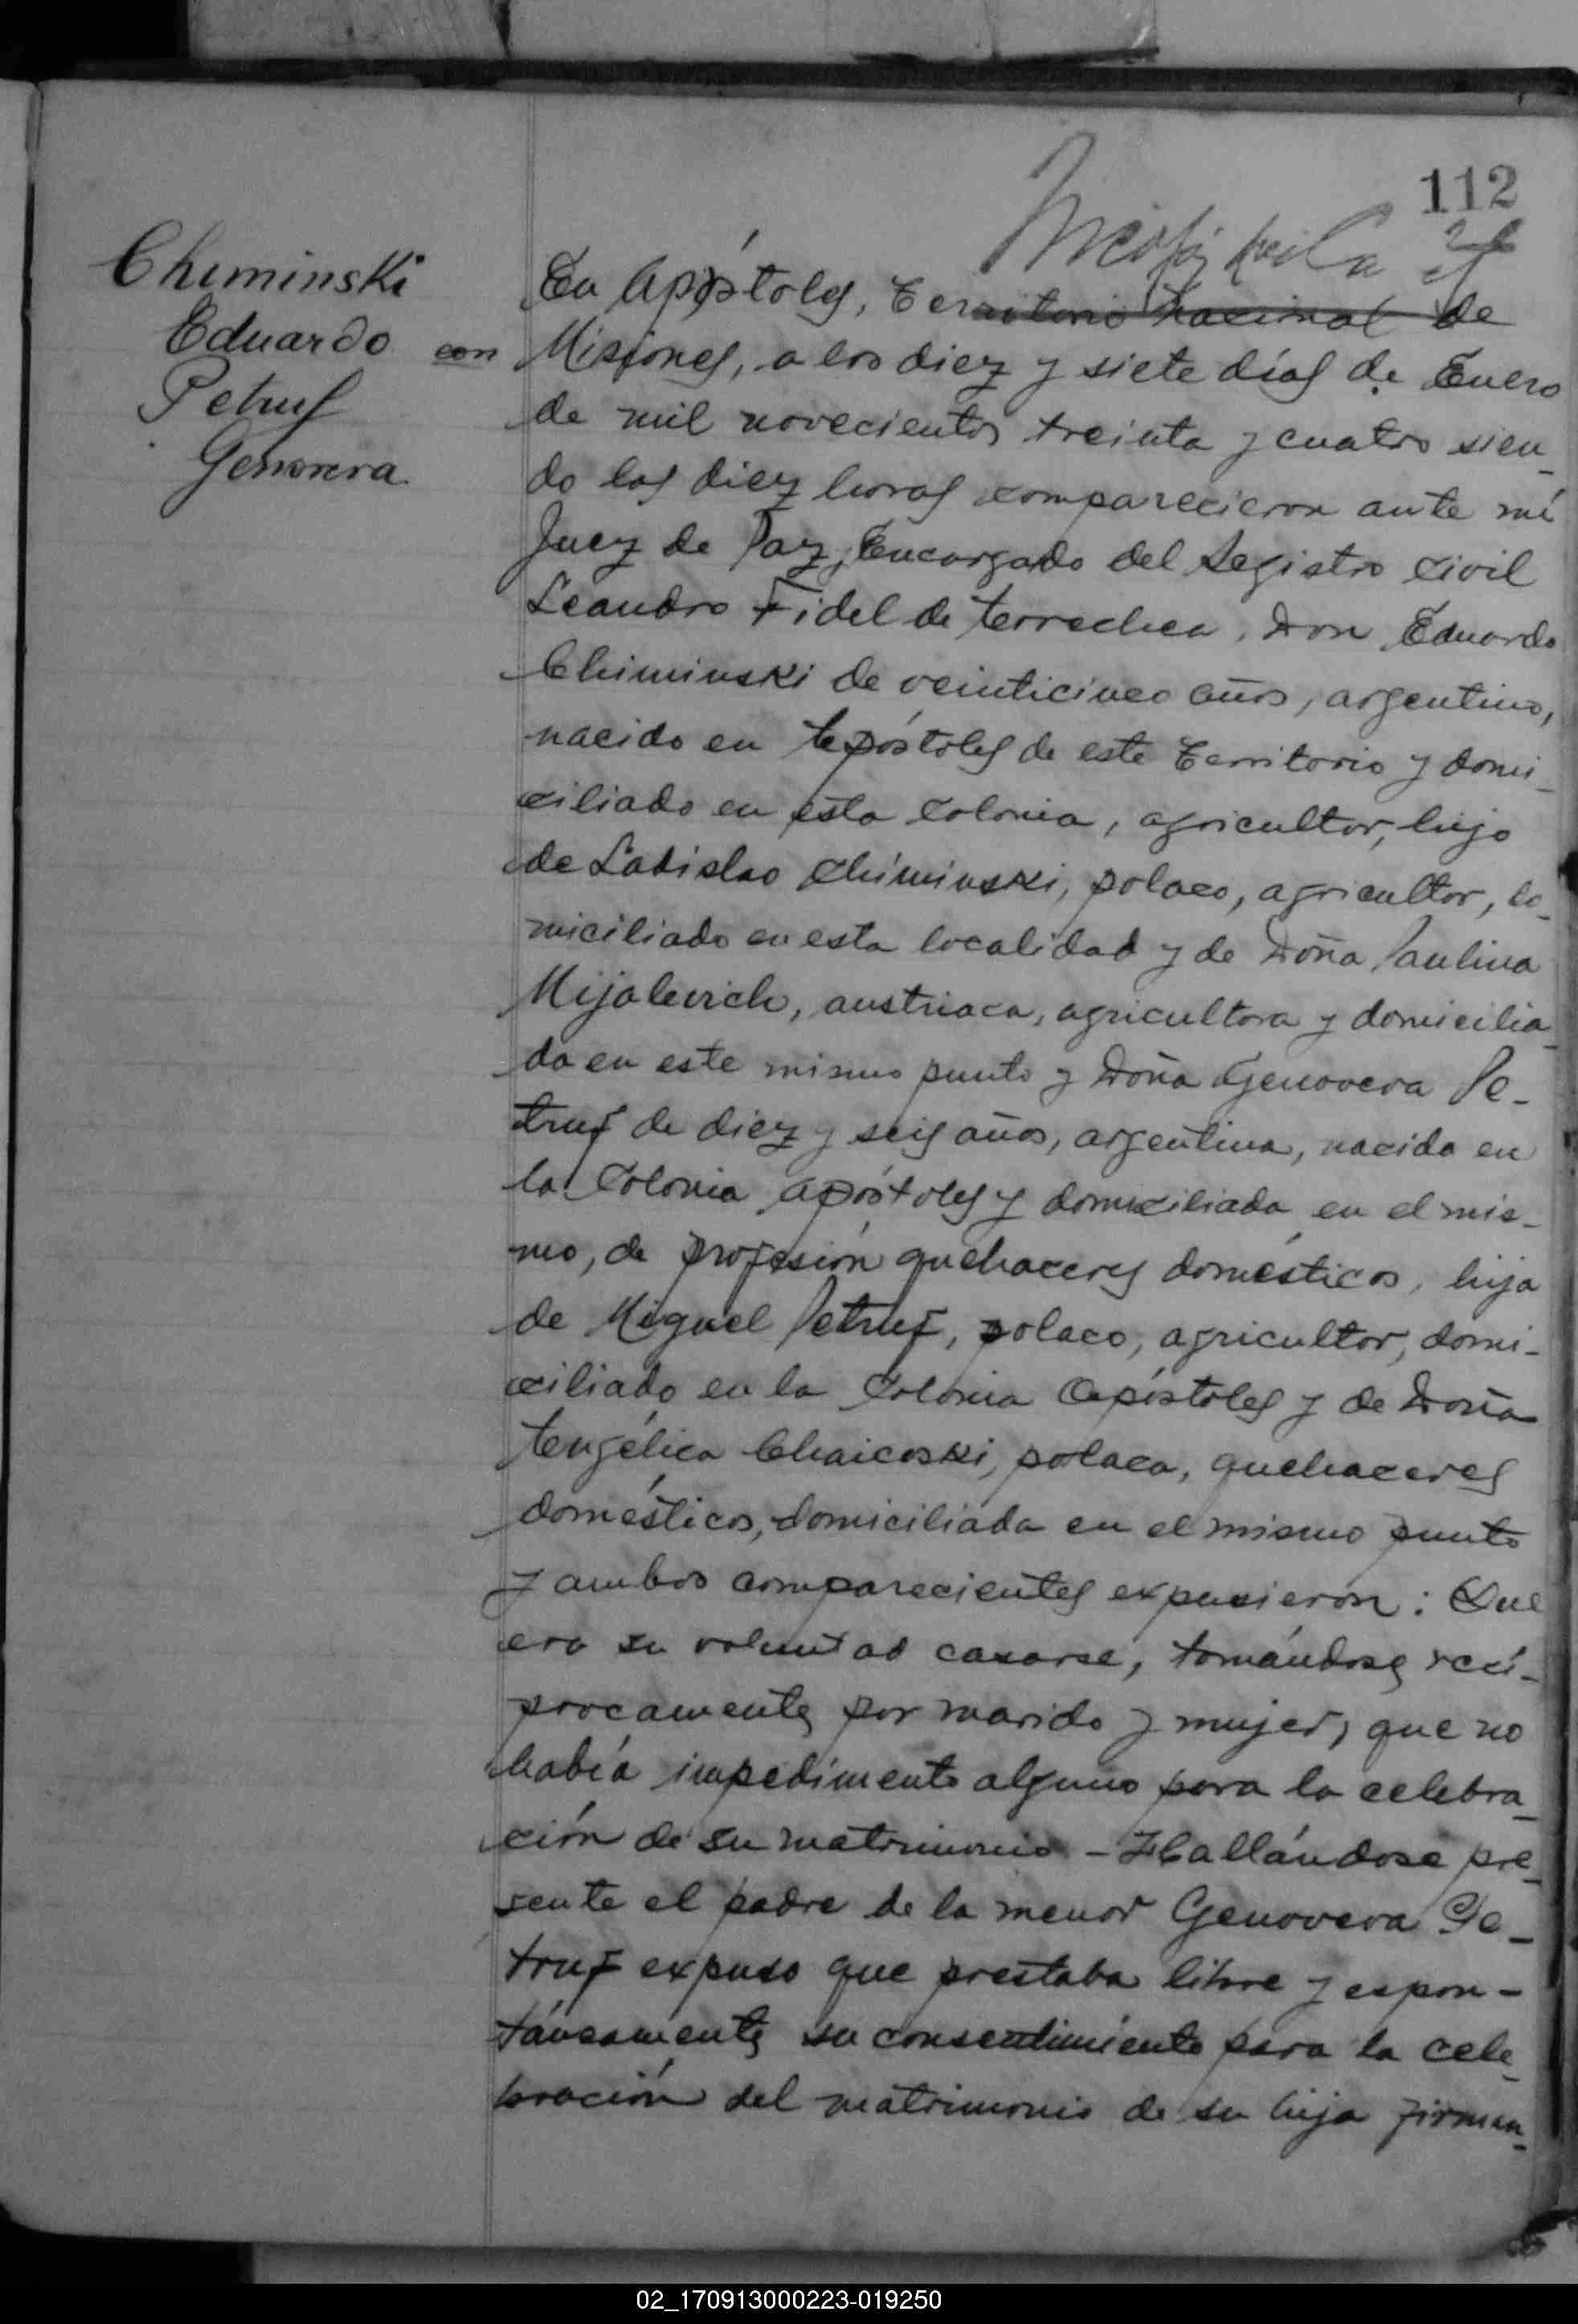 112
Chiminski
Eduardo con
Petruf
Genoveva
En Apóstoles, Territorio Nacional de
Misiones, a los diez y siete días de Enero
de mil novecientos treinta y cuatro sien_
do las diez horas comparecieron ante mí
Juez de Paz, Encargado del Registro Civil
Leandro Fidel de Arrechea, Don Eduardo
Chiminski de veinticinco años, argentino,
nacido en Apóstoles de este Territorio y domi_
ciliado en esta Colonia, agricultor, hijo
de Ladislao Chiminski, polaco, agricultor, do_
miciliado en esta localidad y de Doña Paulina
Mijalevich, austriaca, agricultora y domicilia_
da en este mismo punto y Doña Genoveva Pe_
truf de diez y seis años, argentina, nacida en
la Colonia Apóstoles y domiciliada en el mis_
mo, de profesión quehaceres domésticos, hija
de Miguel Petruf, polaco, agricultor, domi_
ciliado en la Colonia Apóstoles y de Doña
Angélica Chaicoski, polaca, quehaceres
domésticos, domiciliada en el mismo punto
y ambos comparecientes expusieron: Que
era su voluntad casarse, tomándose recí_
procamente por marido y mujer, que no
había impedimento alguno para la celebra_
ción de su matrimonio - Hallándose pre_
sente el padre de la menor Genoveva Pe_
truf expuso que prestaba libre y espon-
táneamente su consentimiento para la cele_
bración del matrimonio de su hija firman_
02_170913000223-019250